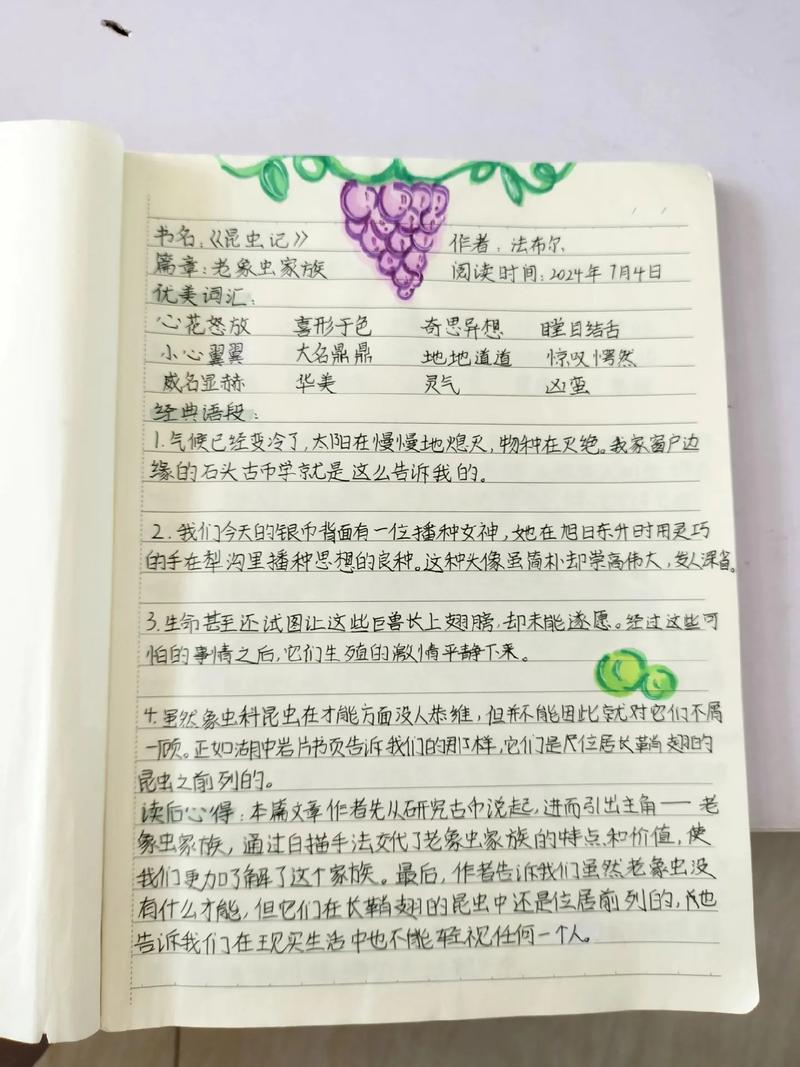 书名：《昆虫记》 作者：法布尔
篇章：老象虫家族 阅读时间：2024年7月4日
优美词汇：
心花怒放 喜形于色 奇思异想 瞠目结舌
小心翼翼 大名鼎鼎 地地道道 惊叹愕然
威名显赫 华美 灵气 凶蛮
经典语段：
1.气候已经变冷了，太阳在慢慢地熄灭，物种在灭绝。我家窗户边
缘的石头古币学就是这么告诉我的。
2.我们今天的银币背面有一位播种女神，她在旭日东升时用灵巧
的手在犁沟里播种思想的良种。这种头像虽简朴却崇高伟大，发人深省。
3.生命甚至还试图让这些巨兽长上翅膀，却未能遂愿。经过这些可
怕的事情之后，它们生殖的激情平静下来。
4.虽然象虫科昆虫在才能方面没人恭维，但并不能因此就对它们不屑
一顾。正如湖中岩片书页告诉我们的那样，它们是尺位居长鞘翅的
昆虫之前列的。
读后心得：本篇文章作者先从研究古币说起，进而引出主角——老
象虫家族，通过白描手法交代了老象虫家族的特点和价值，使
我们更加了解了这个家族。最后，作者告诉我们虽然老象虫没
有什么才能，但它们在长鞘翅的昆虫中还是位居前列的，也
告诉我们在现实生活中也不能轻视任何一个人。